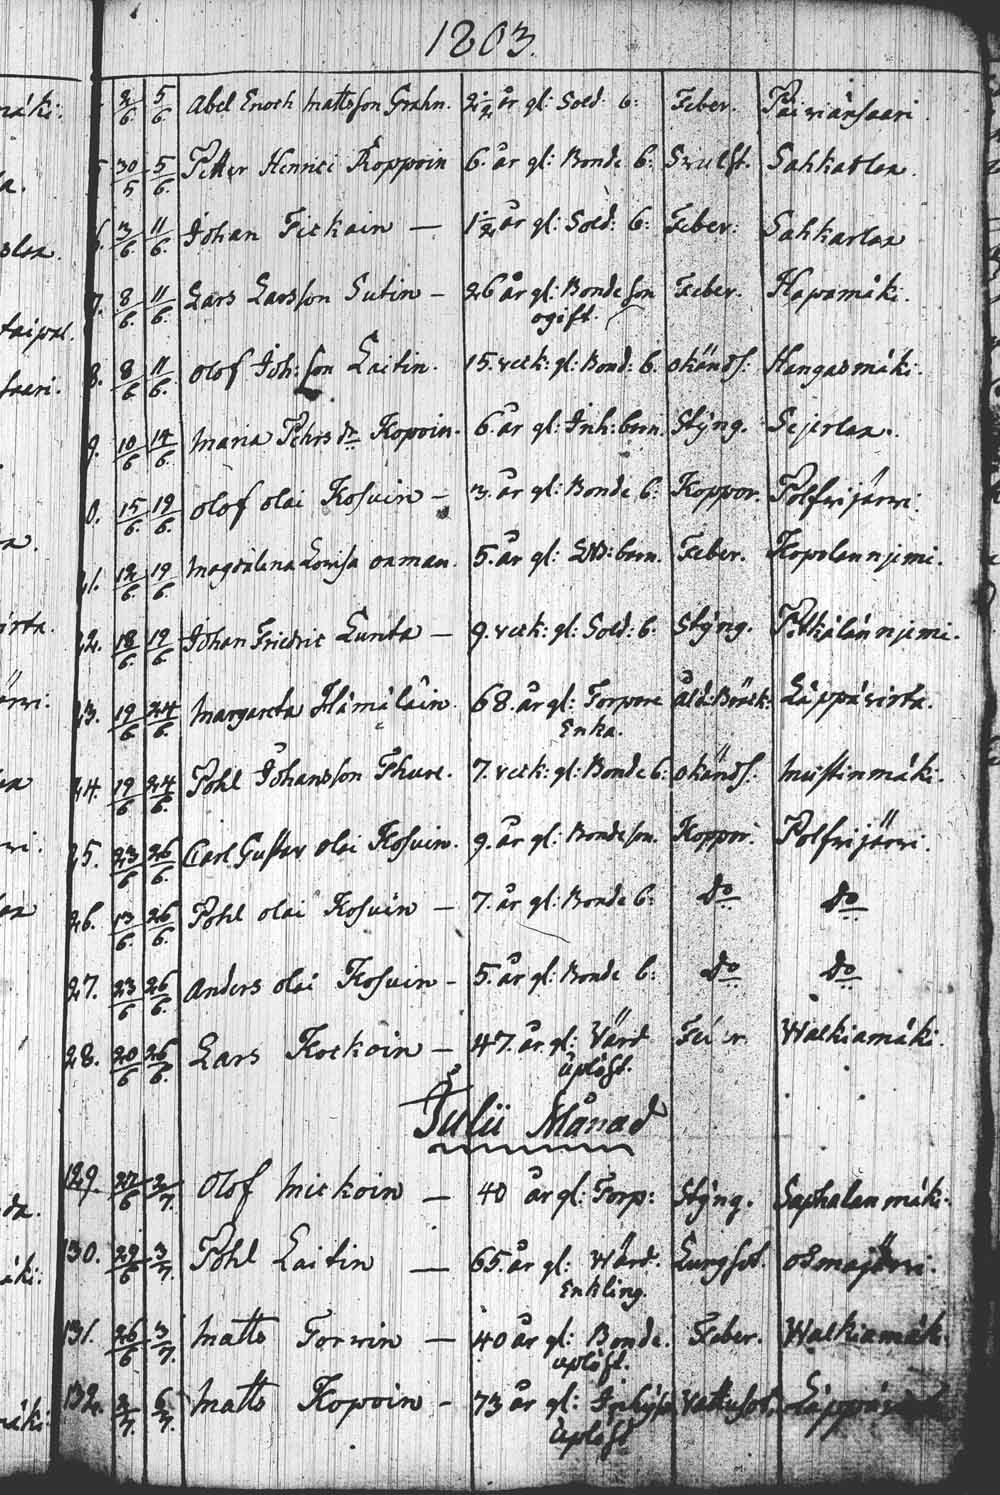 1803.
2/6. 5/6. Abel Enoch Mattsson Grahn. 2 1/2 år gl: Sold: b: Feber. Päiviänsaari.
30/5 5/6. Petter Henrici Koppoin 6. år gl: Bonde b: Svulst. Sahkarlax.
3/6. 11/6. Johan Fickain — 1 1/2 år gl: Sold: b: Feber: Sahkarlax
7. 8/6. 11/6. Lars Larsson Sutin — 26 år gl: Bondeson Feber. Hapamäki.
ogift.
8. 8/6 11/6. Olof Joh:son Laitin. 15. veck: gl: Bond: b. okänds: Hangasmäki.
9. 10/6 14/6. Maria Pehrs dr Kopoin. 6. år gl: Inh: barn. Stÿng. Sejerlax.
0. 15/6. 19/6. Olof Olai Kosuin — 3. år gl: Bonde b: Koppor. Polfvijärvi.
21. 12/6. 19/6. Magdalena Lovisa Oxman. 5. år gl: barn. Feber. Kopolanniemi.
22. 18/6. 19/6. Johan Fridric Lunta — 9. veck: gl: Sold: b. Stÿng. Pitkälänniemi.
23. 19/6 24/6. Margareta Hämäläin. 68. år gl: Torpare Åld: Bräck: Läppävirta.
Enka.
24. 19/6. 24/6. Pohl Johansson Thure. 7. veck: gl: Bonde b: okänds: Mustinmäki.
25. 23/6 26/6. Carl Gustav Olai Kosuin. 9. år gl: Bondeson. Koppor. Polfvijärvi.
26. 13/6. 26/6. Pohl Olai Kosuin — 7. år gl: Bonde b: do do
27. 23/6 26/6. Anders Olai Kosuin — 5. år gl: Bonde b: do do
28. 20/6 26/6. Lars Kockoin — 47. år gl: Värd Feber Walkiamäki.
upløst.
Julii Månad
129. 27/6 2/7. Olof Mickoin — 40 år gl: Torp: Stÿng. Saphalanmäki.
130. 29/6 3/7. Pohl Laitin — 65. år gl: Wärd. Lungsot. Osmajärvi.
Enkling.
131. 26/6 3/7. Matts Torvin — 40 år gl: Bonde. Feber. Walkiamäki.
132. 2/7. 6/7. Matts Kopoin — 73 år gl: Vattusot.